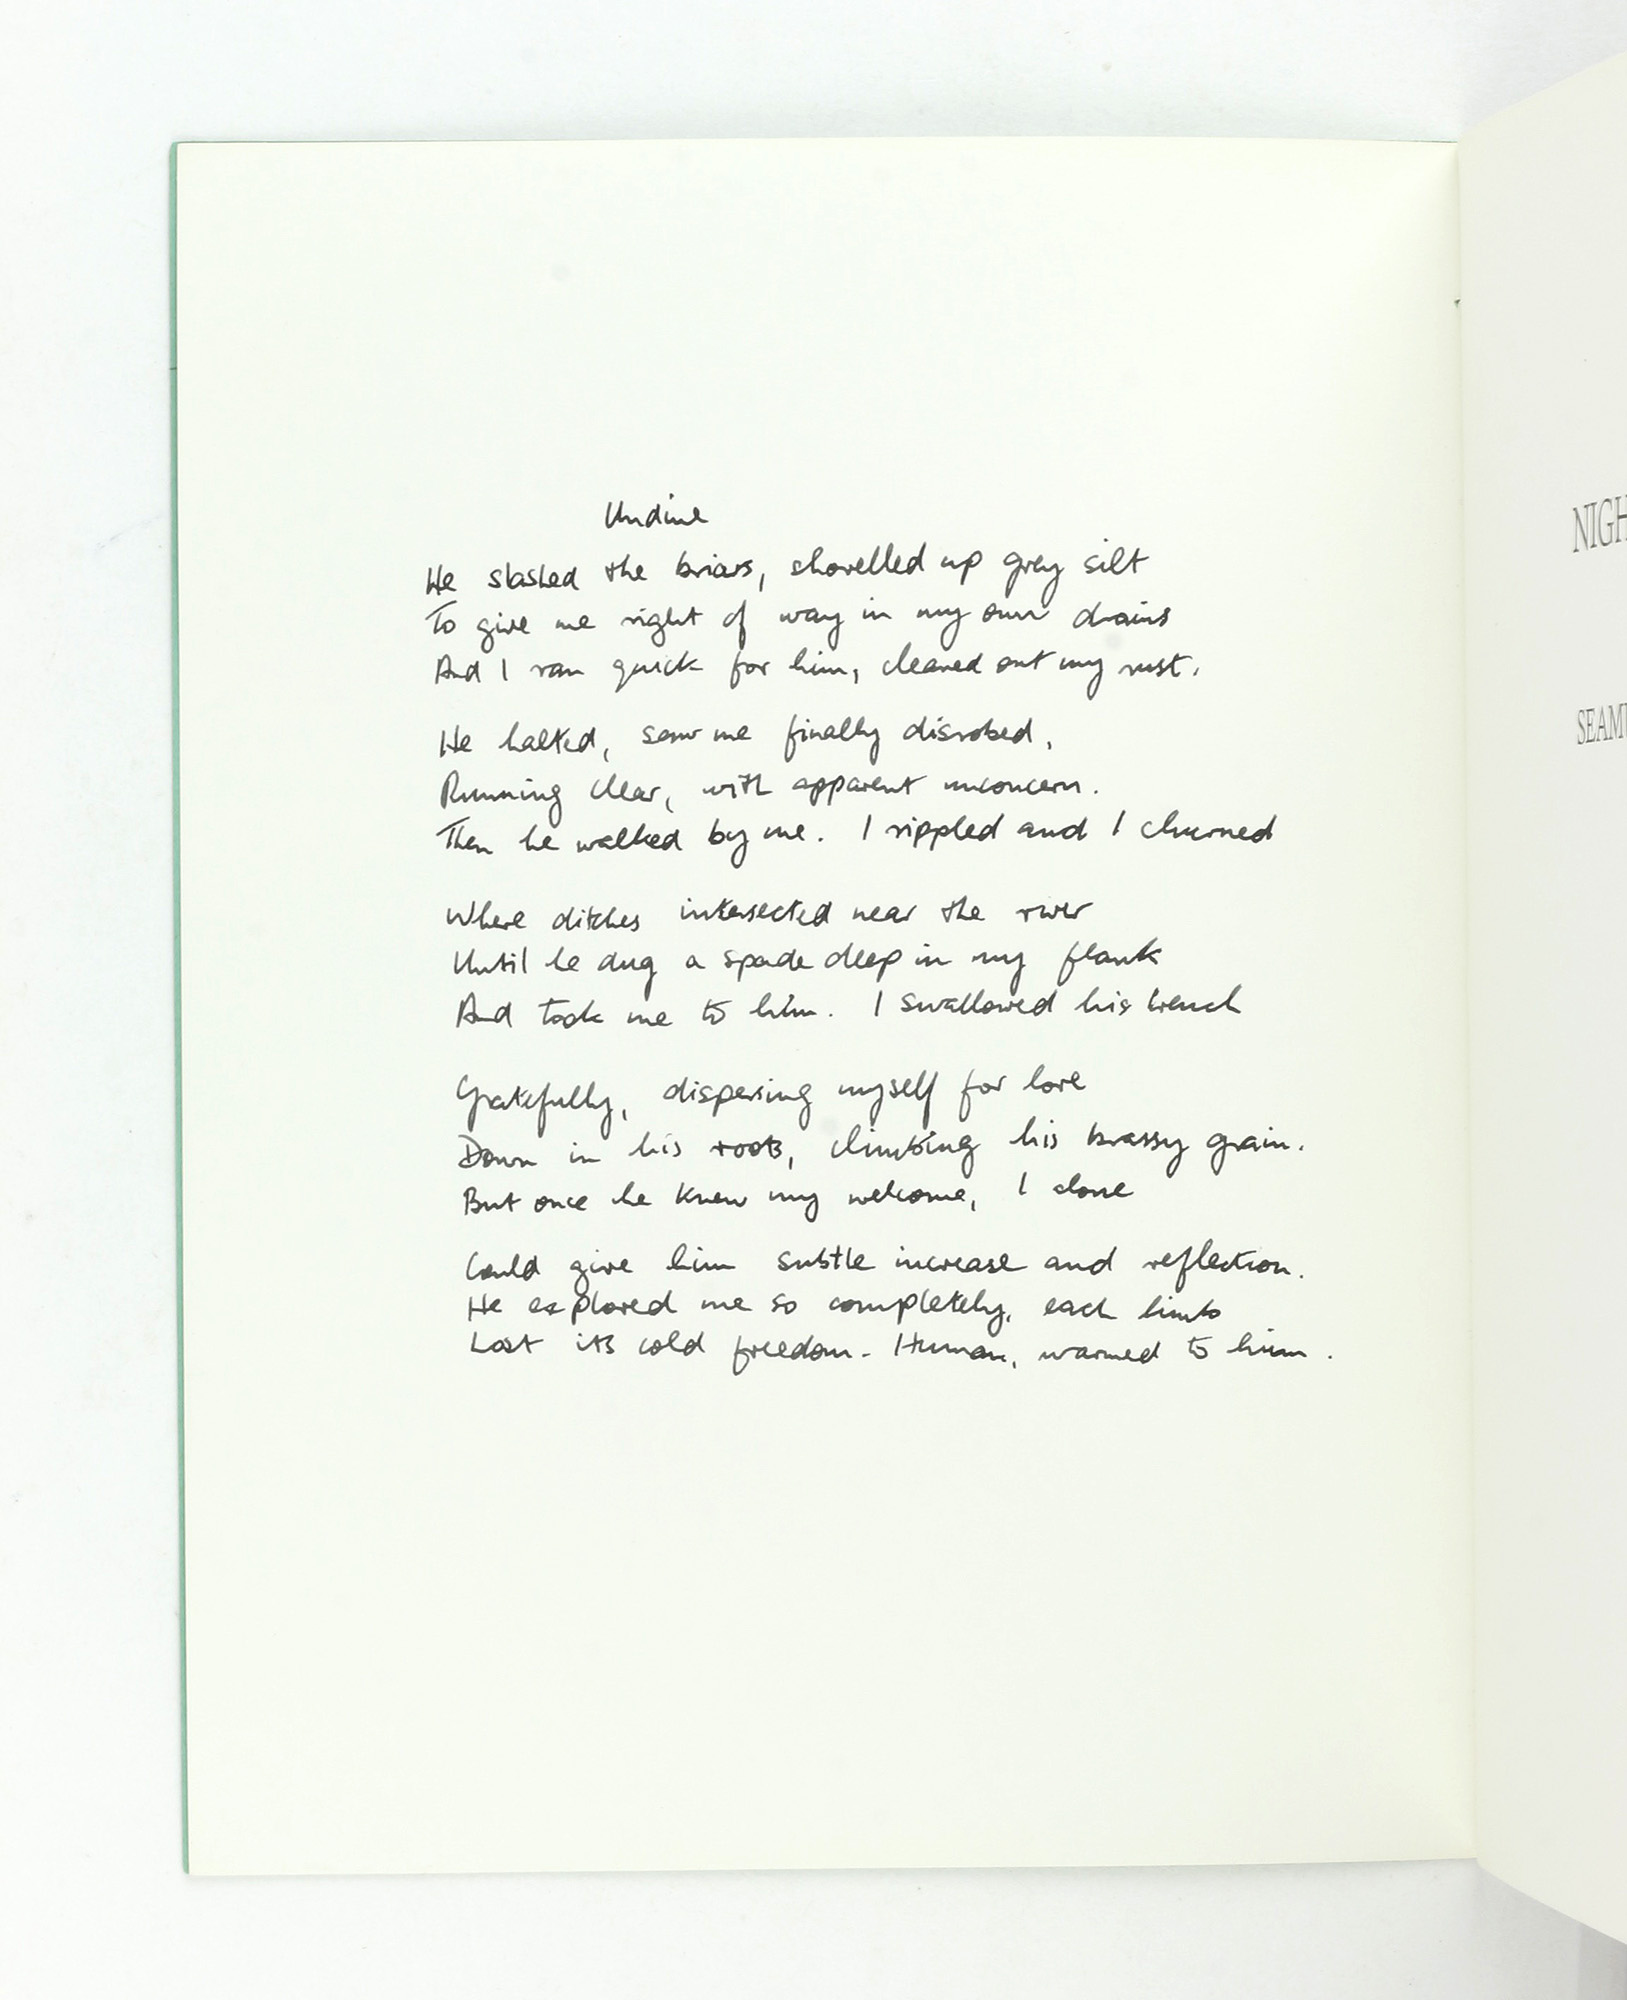 Undine
He slashed the briars, shovelled up grey silt
To give me right of way in my own drains
And I ran quick for him, cleaned out my rust.
He halted, saw me finally disrobed,
Running clear, with apparent unconcern.
Then he walked by me. I rippled and I churned
Where ditches intersected near the river
Until he dug a spade deep in my flank
And took me to him. I swallowed his trench
Gratefully, dispersing myself for love
Down in his roots, climbing his brassy grain.
But once he knew my welcome, I alone
Could give him subtle increase and reflection.
He explored me so completely, each limb
Lost its cold freedom. Human, warmed to him.
NIGH
SEAMU